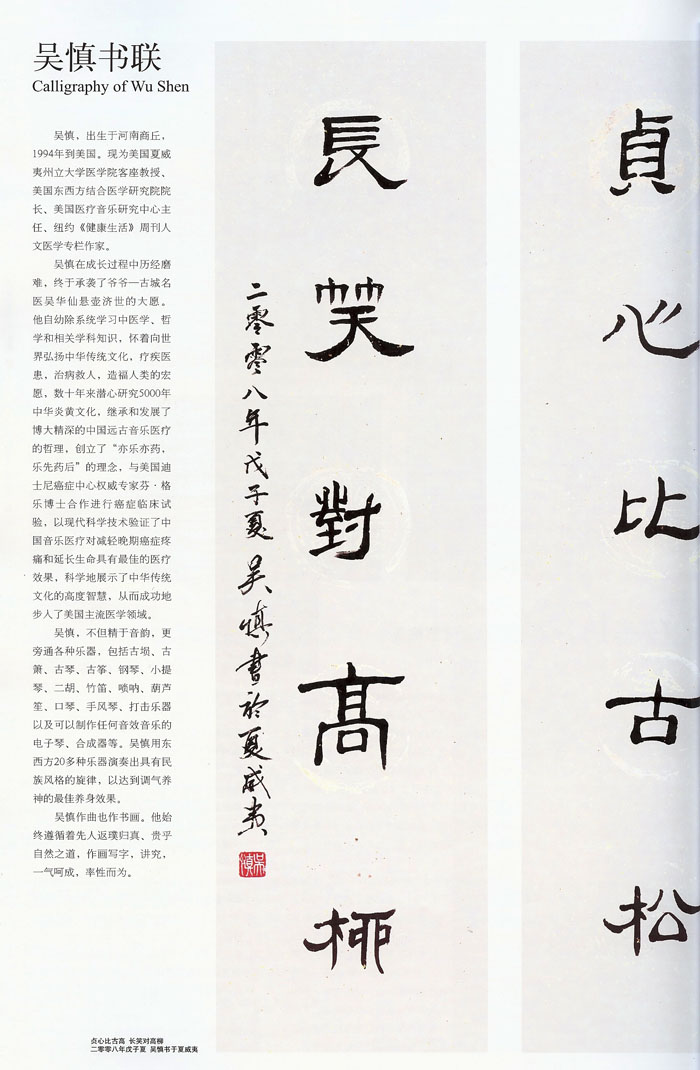 吴慎书联
Calligraphy of Wu Shen
吴慎，出生于河南商丘，
1994年到美国。现为美国夏威
夷州立大学医学院客座教授、
美国东西方结合医学研究院院
长、美国医疗音乐研究中心主
任、纽约《健康生活》周刊人
文医学专栏作家。
吴慎在成长过程中历经磨
难，终于承袭了爷爷—古城名
医吴华仙悬壶济世的大愿。
他自幼除系统学习中医学、哲
学和相关学科知识，怀着向世
界弘扬中华传统文化，疗疾医
患，治病救人，造福人类的宏
愿，数十年来潜心研究5000年
中华炎黄文化，继承和发展了
博大精深的中国远古音乐医疗
的哲理，创立了“亦乐亦药，
乐先药后”的理念，与美国迪
士尼癌症中心权威专家芬·格
乐博士合作进行癌症临床试
验，以现代科学技术验证了中
国音乐医疗对减轻晚期癌症疼
痛和延长生命具有最佳的医疗
效果，科学地展示了中华传统
文化的高度智慧，从而成功地
步人了美国主流医学领域。
吴慎，不但精于音韵，更
旁通各种乐器，包括古埙、古
箫、古琴、古筝、钢琴、小提
琴、二胡、竹笛、唢呐、葫芦
笙、口琴、手风琴、打击乐器
以及可以制作任何音效音乐的
电子琴、合成器等。吴慎用东
西方20多种乐器演奏出具有民
族风格的旋律，以达到调气养
神的最佳养身效果。
吴慎作曲也作书画。他始
终遵循着先人返璞归真、贵乎
自然之道，作画写字，讲究，
一气呵成，率性而为。
貞心比古松
長笑對高柳
二零零八年戊子夏 吴慎書於夏威夷
吴慎
贞心比古高 长笑对高柳
二零零八年戊子夏 吴慎书于夏威夷